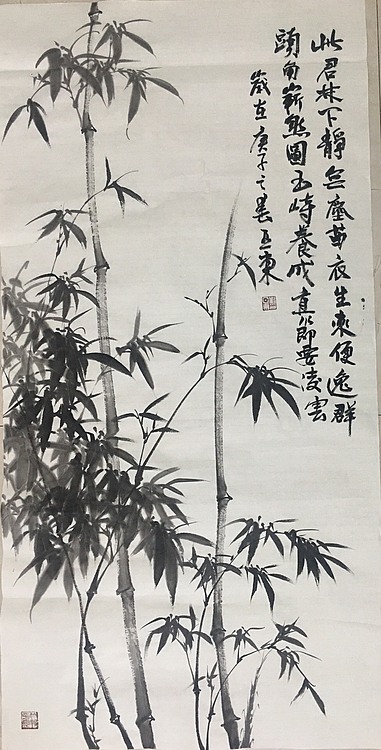 此君林下靜無塵苗衣生來便逸群
頭角嶄然圖玉峙養成直節要凌雲
歲在庚子之